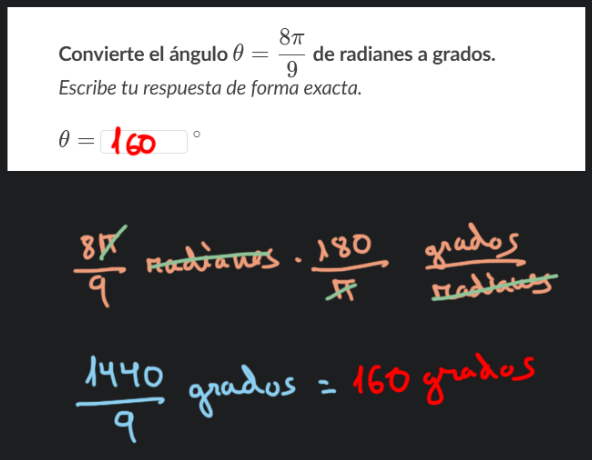 Convierte el ángulo θ = 8π/9 de radianes a grados.
Escribe tu respuesta de forma exacta.
θ = 160 °
8π/9 radianes · 180/π grados/radianes
1440/9 grados = 160 grados